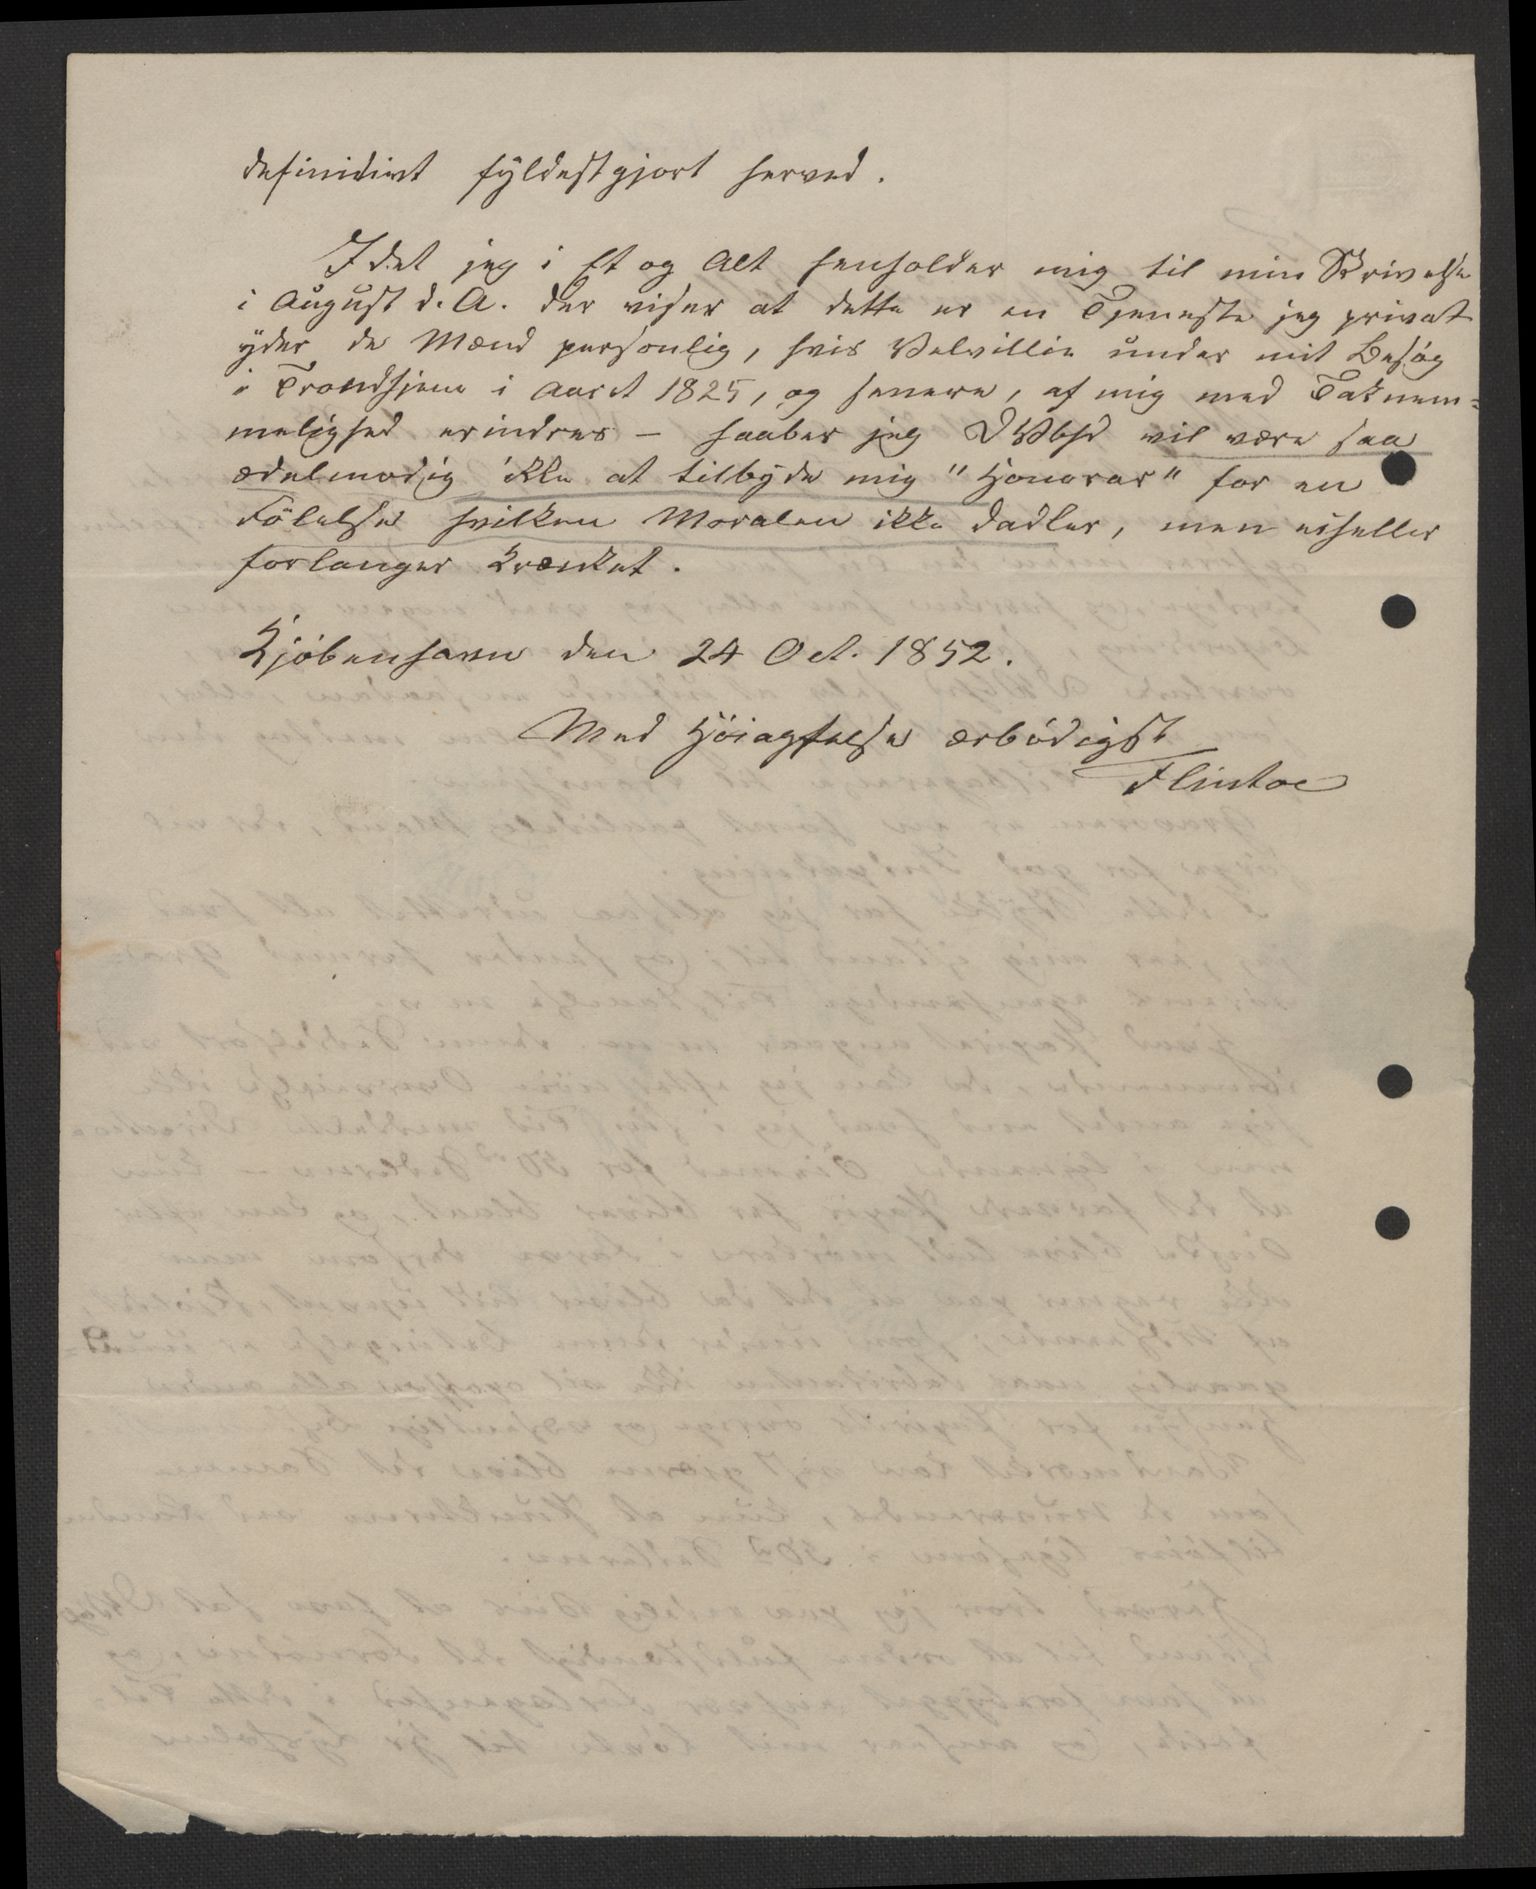 definidivt fyldestgjort herved.
Idet jeg i Et og Alt henholder mig til min Skrivelse
i August d. A. der viser at dette er en Tjeneste jeg privat
yder de Mænd personlig, hvis Velvillie under mit Besøg
i Trondhjem i Aaret 1825, og senere, af mig med Taknem=
melighed erindres – haaber jeg DVbhd vil være saa
ædelmodig ikke at tilbyde mig "Honorar" for en
Følelse hvilken Moralen ikke dadler, men eiheller
forlanger krænket.
Kjøbenhavn den 24 Oct. 1852.
Med Høiagtelse ærbødigst
Flintoe